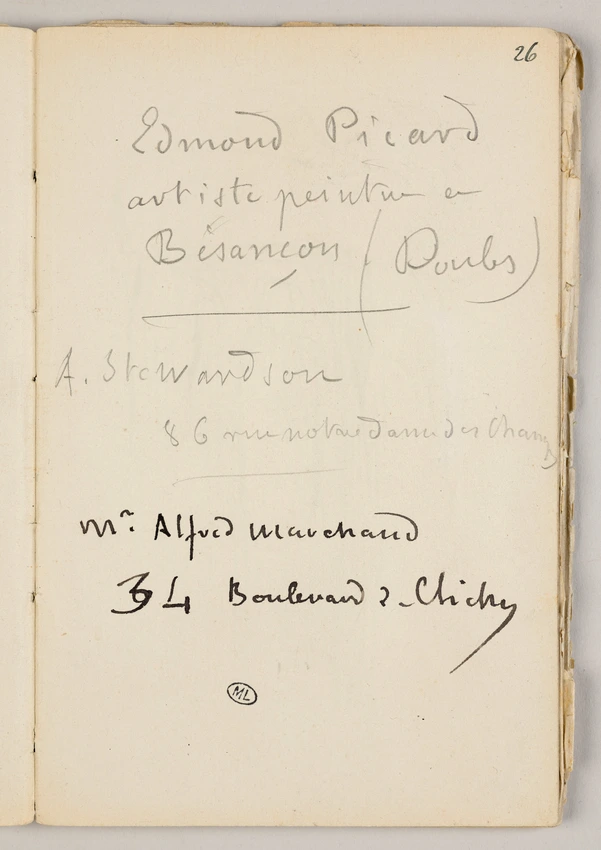 26
Edmond Picard
artiste peintre a
Bésançon (Doubs)
A. Stewardson
86 rue notre dame des Champs
Mr. Alfred Marchand
34 Boulevard de Clichy
ML